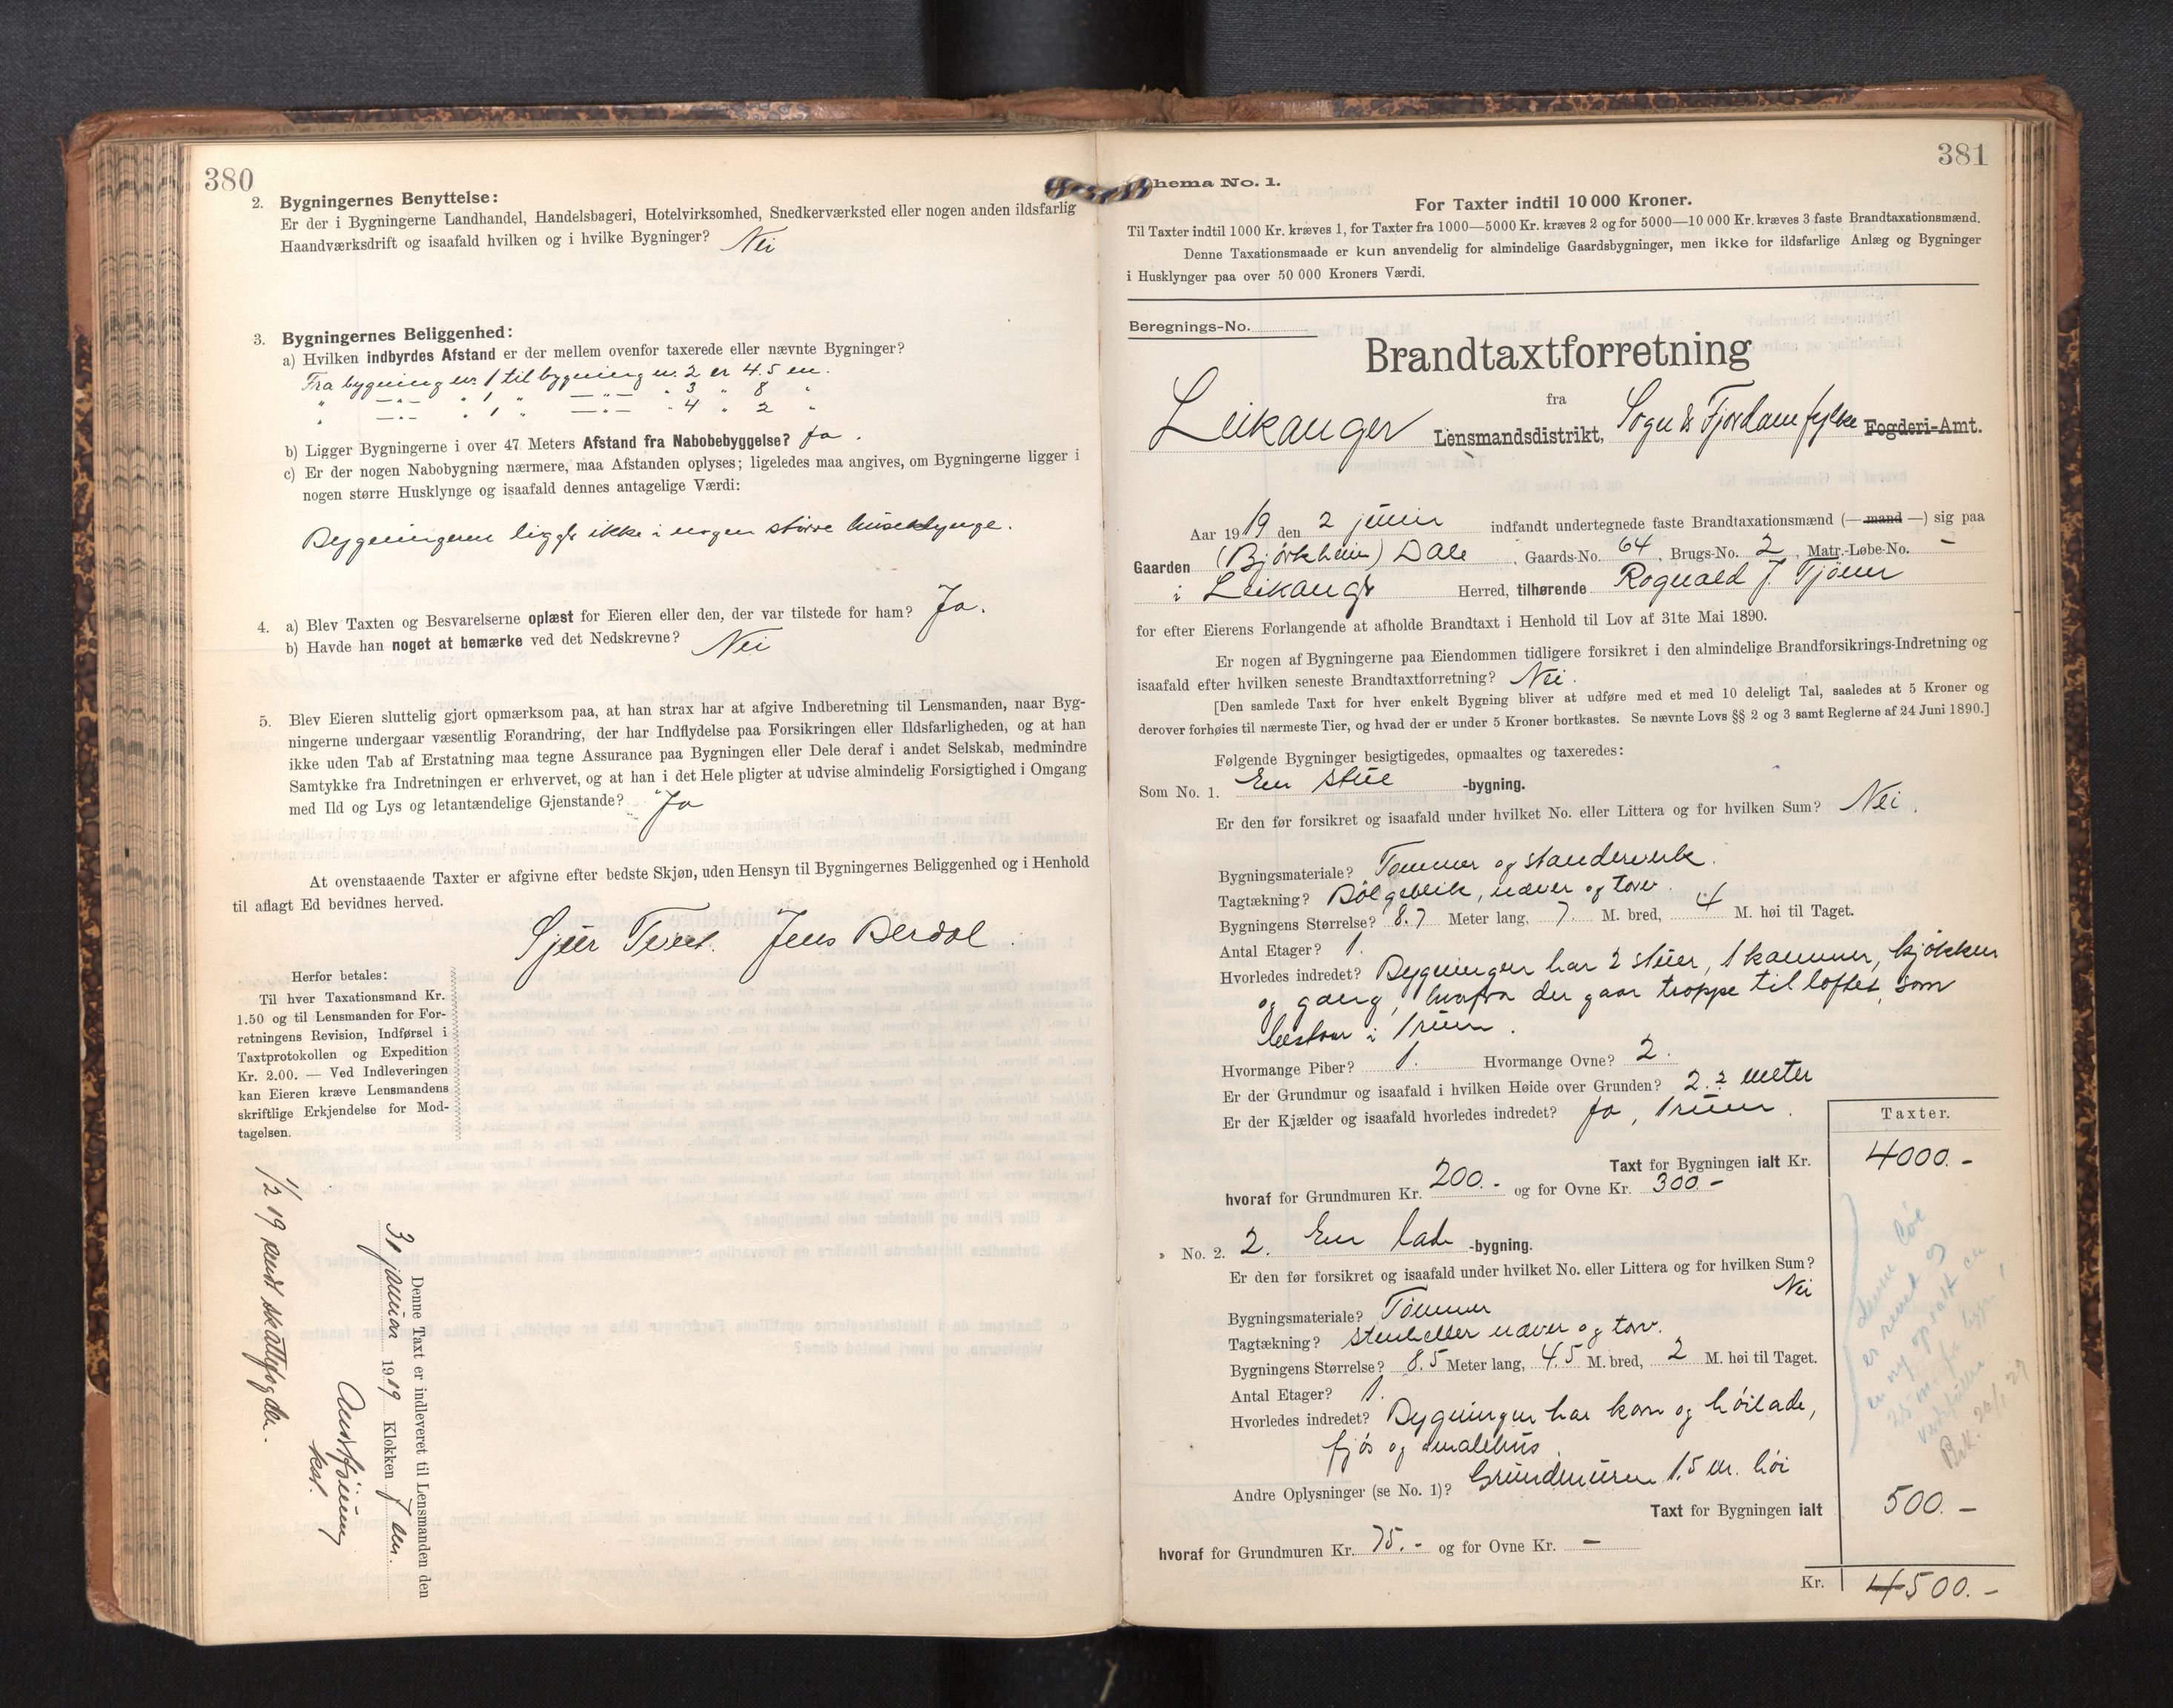 380
2. Bygningernes Benyttelse:
Er der i Bygningerne Landhandel, Handelsbageri, Hotelvirksomhed, Snedkerværksted eller nogen anden ildsfarlig
Haandværksdrift og isaafald hvilken og i hvilke Bygninger? Nei
3. Bygningernes Beliggenhed:
a) Hvilken indbyrdes Afstand er der mellem ovenfor taxerede eller nævnte Bygninger?
Fra bygning nr. 1 til bygning nr. 2 er 4.5 m.
" —"— " 1 " —"— " 3 " 8 "
" —"— " 1 " —"— " 4 " 2 "
b) Ligger Bygningerne i over 47 Meters Afstand fra Nabobebyggelse? Ja.
c) Er der nogen Nabobygning nærmere, maa Afstanden oplyses; ligeledes maa angives, om Bygningerne ligger i
nogen større Husklynge og isaafald dennes antagelige Værdi:
Bygningerne ligger ikke i nogen større huseklynge.
4. a) Blev Taxten og Besvarelserne oplæst for Eieren eller den, der var tilstede for ham? Ja.
b) Havde han noget at bemærke ved det Nedskrevne? Nei
5. Blev Eieren sluttelig gjort opmærksom paa, at han strax har at afgive Indberetning til Lensmanden, naar Byg-
ningerne undergaar væsentlig Forandring, der har Indflydelse paa Forsikringen eller Ildsfarligheden, og at han
ikke uden Tab af Erstatning maa tegne Assurance paa Bygningen eller Dele deraf i andet Selskab, medmindre
Samtykke fra Indretningen er erhvervet, og at han i det Hele pligter at udvise almindelig Forsigtighed i Omgang
med Ild og Lys og letantændelige Gjenstande? Ja
At ovenstaaende Taxter er afgivne efter bedste Skjøn, uden Hensyn til Bygningernes Beliggenhed og i Henhold
til aflagt Ed bevidnes herved.
Sjur Tveit. Jens Berdal.
Herfor betales:
Til hver Taxationsmand Kr.
1.50 og til Lensmanden for For-
retningens Revision, Indførsel i
Taxtprotokollen og Expedition
Kr. 2.00. — Ved Indleveringen
kan Eieren kræve Lensmandens
skriftlige Erkjendelse for Mod-
tagelsen.
Denne Taxt er indleveret til Lensmanden den
31 januar 1919 Klokken 7 em.
kst.
1/2 19 sendt skattefogden.
381
hema No. 1.
For Taxter indtil 10 000 Kroner.
Til Taxter indtil 1000 Kr. kræves 1, for Taxter fra 1000—5000 Kr. kræves 2 og for 5000—10 000 Kr. kræves 3 faste Brandtaxationsmænd.
Denne Taxationsmaade er kun anvendelig for almindelige Gaardsbygninger, men ikke for ildsfarlige Anlæg og Bygninger
i Husklynger paa over 50 000 Kroners Værdi.
Beregnings-No.
Brandtaxtforretning
fra
Leikanger Lensmandsdistrikt, Sogn & Fjordane fylke Fogderi-Amt.
Aar 1919 den 2 juni indfandt undertegnede faste Brandtaxationsmænd (— mand —) sig paa
Gaarden (Bjørkheim) Dale, Gaards-No. 64, Brugs-No. 2, Matr.-Løbe-No. —
i Leikanger Herred, tilhørende Rognald J. Tjønn
for efter Eierens Forlangende at afholde Brandtaxt i Henhold til Lov af 31te Mai 1890.
Er nogen af Bygningerne paa Eiendommen tidligere forsikret i den almindelige Brandforsikrings-Indretning og
isaafald efter hvilken seneste Brandtaxtforretning? Nei.
[Den samlede Taxt for hver enkelt Bygning bliver at udføre med et med 10 deleligt Tal, saaledes at 5 Kroner og
derover forhøies til nærmeste Tier, og hvad der er under 5 Kroner bortkastes. Se nævnte Lovs §§ 2 og 3 samt Reglerne af 24 Juni 1890.]
Følgende Bygninger besigtigedes, opmaaltes og taxeredes:
Som No. 1. En stue -bygning.
Er den før forsikret og isaafald under hvilket No. eller Littera og for hvilken Sum? Nei.
Bygningsmateriale? Tømmer og standerverk.
Tagtækning? Bølgeblik, næver og torv.
Bygningens Størrelse? 8.7 Meter lang, 7. M. bred, 4 M. høi til Taget.
Antal Etager? 1.
Hvorledes indredet? Bygningen har 2 stuer, 1 kammer, kjøkken
og gang, hvorfra der gaar trappe til loftet, som
bestaar i 1 rum.
Hvormange Piber? 1. Hvormange Ovne? 2.
Er der Grundmur og isaafald i hvilken Høide over Grunden? 2.2 meter
Er der Kjælder og isaafald hvorledes indredet? Ja, 1 rum.
Taxter.
Taxt for Bygningen ialt Kr. 4000.-
hvoraf for Grundmuren Kr. 200.- og for Ovne Kr. 300.-
» No. 2. 2. En lade -bygning.
Er den før forsikret og isaafald under hvilket No. eller Littera og for hvilken Sum?
Nei
Bygningsmateriale? Tømmer
Tagtækning? Stenheller næver og torv.
Bygningens Størrelse? 8.5 Meter lang, 4.5 M. bred, 2 M. høi til Taget.
Antal Etager? 1.
Hvorledes indredet? Bygningen har korn og høilade,
fjøs og smalehus.
Andre Oplysninger (se No. 1)? Grundmuren 1.5 m. høi
Taxt for Bygningen ialt 500.-
hvoraf for Grundmuren Kr. 75.- og for Ovne Kr. —
Kr. 4500.-
denne løe
er revet og
en ny opsatt